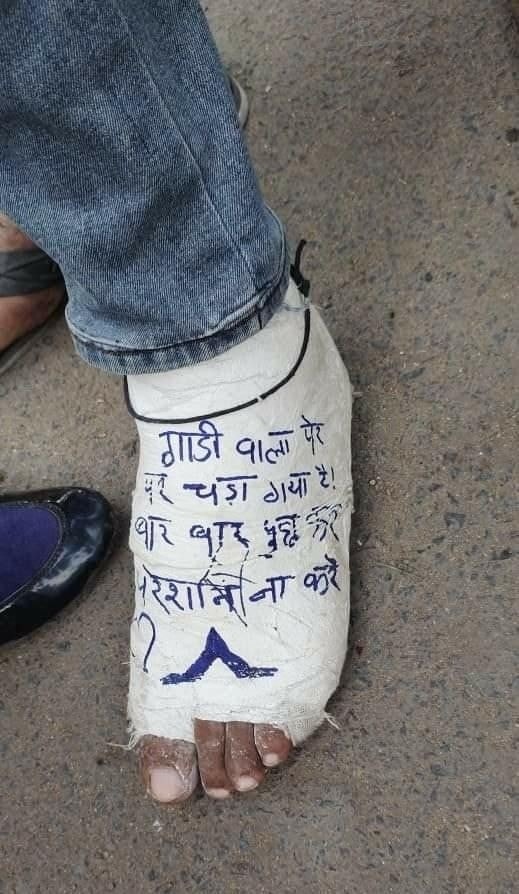 गाडी वाला पेर
पर चड़ा गया है।
बार बार पुछ कर
परेशान ना करें